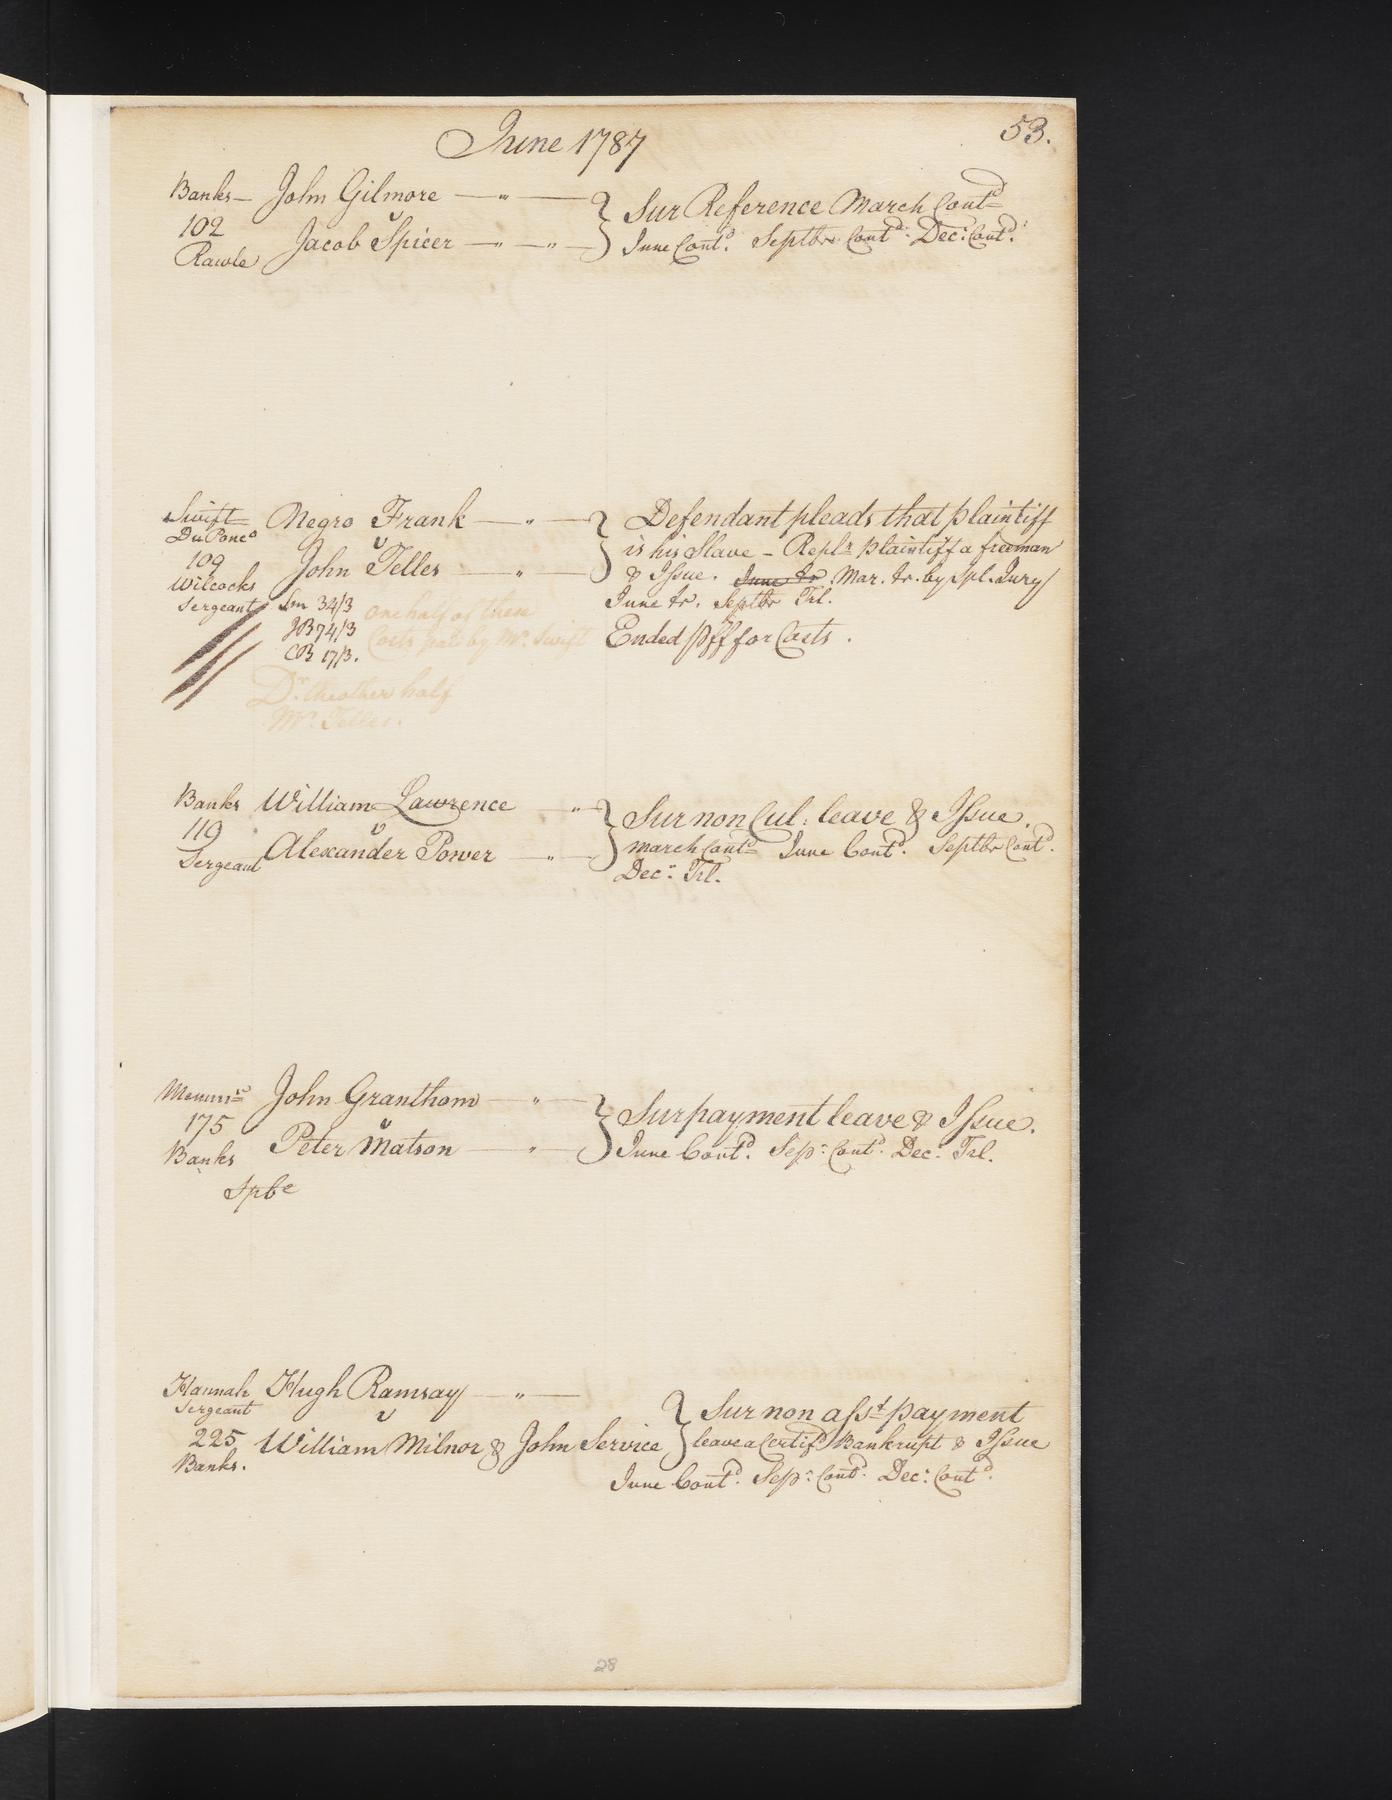 June 1787
53.
Banks — John Gilmore — " —
102 v
Rawle Jacob Spicer — " — " —
Sur Reference March Contd
June Contd. Septbr Contd. Decr. Contd.
Swift Negro Frank — " —
DuPonco
109 v
Wilcocks John Telles — " —
Sergeant
Defendant pleads that Plaintiff
is his Slave — Repls Plaintiff a freeman
& Issue. June tr. Mar. tr. by Spl. Jury
June tr. Septbr Trl.
Ended Pff for Costs.
Sm 34/3
JB 74/3
CB 17/3.
one half of these
Costs paid by Mr. Swift
Dr. the other half
Mr. Telles.
Banks William Lawrence — " —
119 v
Sergeant Alexander Power — " —
Sur non Cul: leave & Issue.
March Contd June Contd. Septbr Contd.
Decr. Trl.
John Granthom — " —
175 v
Banks Peter Matson — " —
Sur payment leave & Issue.
June Contd. Sepr. Contd. Decr. Trl.
Hannah Hugh Ramsay — " —
Sergeant
225 v
Banks. William Milnor & John Service
Sur non asst payment
leave a Certif. Bankrupt & Issue
June Contd. Sepr. Contd. Decr. Contd.
28